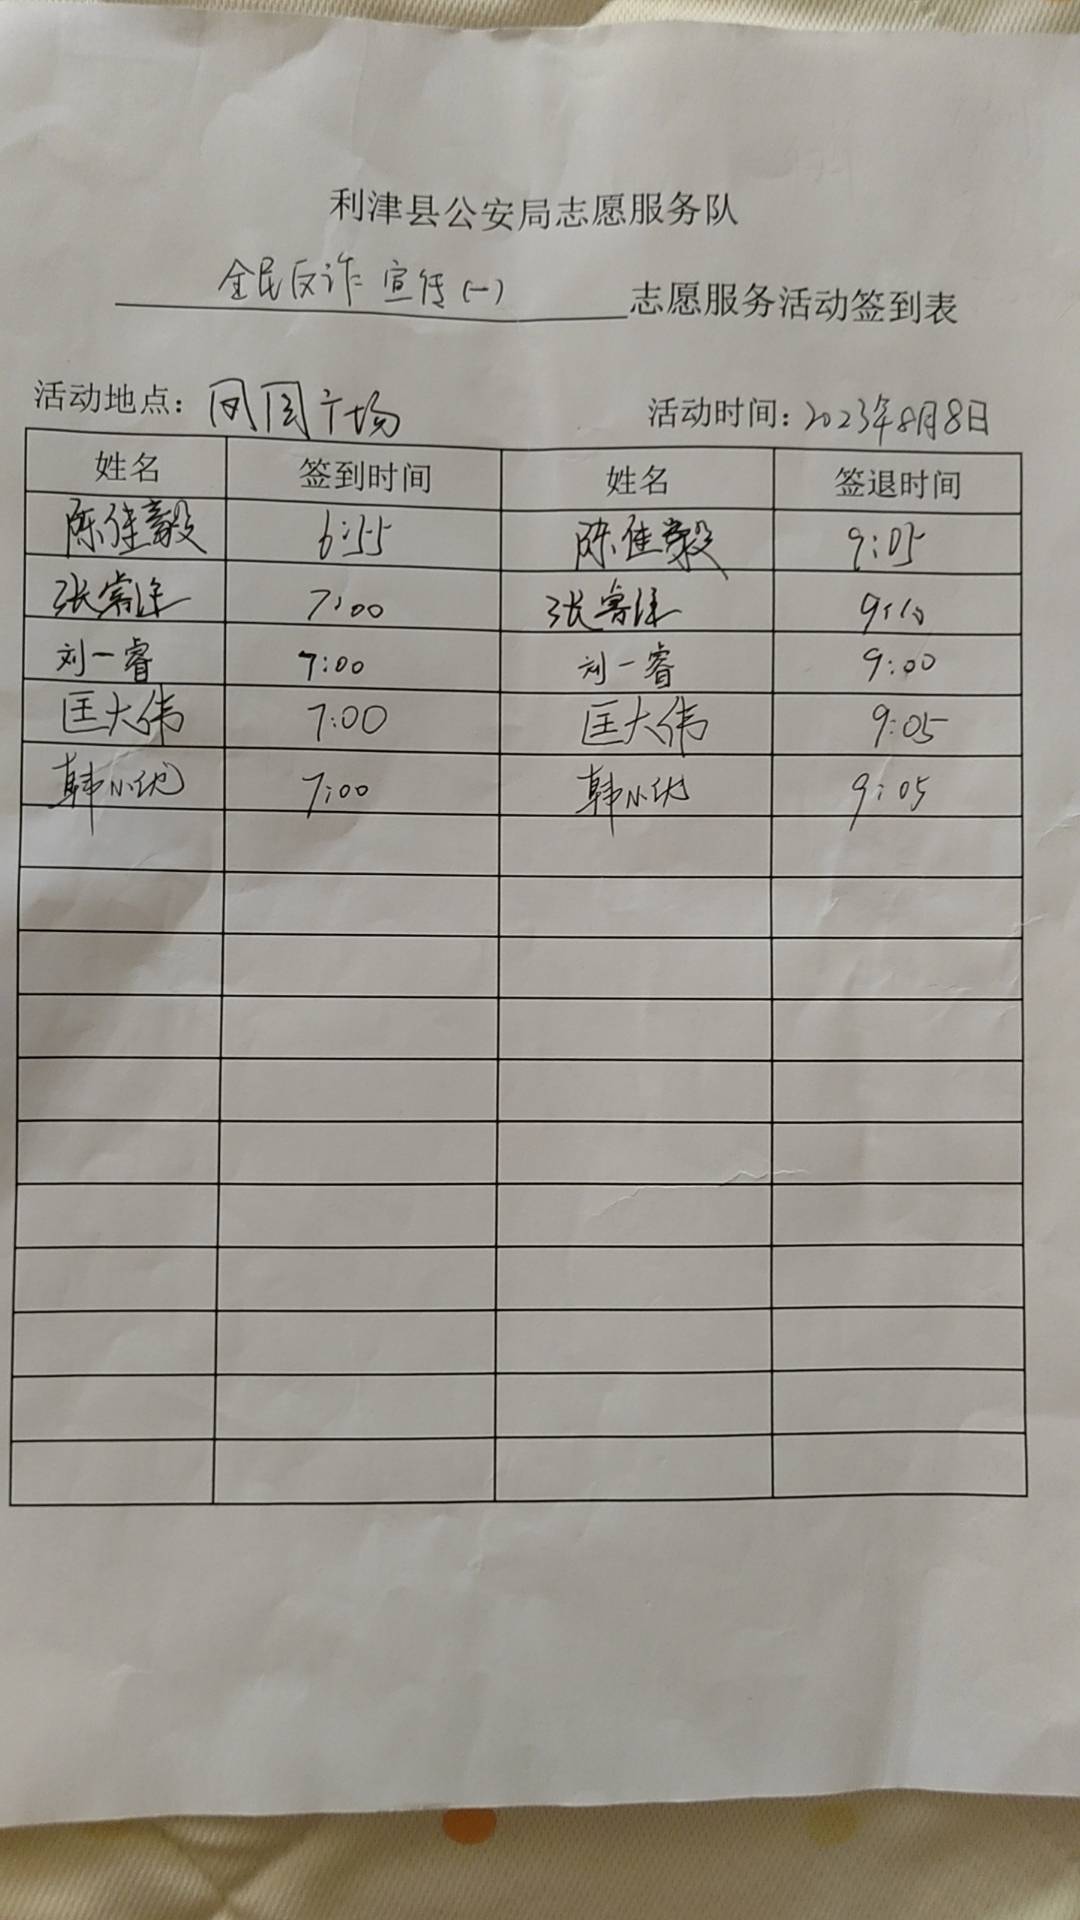 利津县公安局志愿服务队
全民反诈宣传(一) 志愿服务活动签到表
活动地点: 广场 活动时间: 2023年8月8日
姓名 签到时间 姓名 签退时间
陈佳毅 6:55 陈佳毅 9:05
张 7:00 张 9:10
刘一睿 7:00 刘一睿 9:00
匡大伟 7:00 匡大伟 9:05
韩小优 7:00 韩小优 9:05